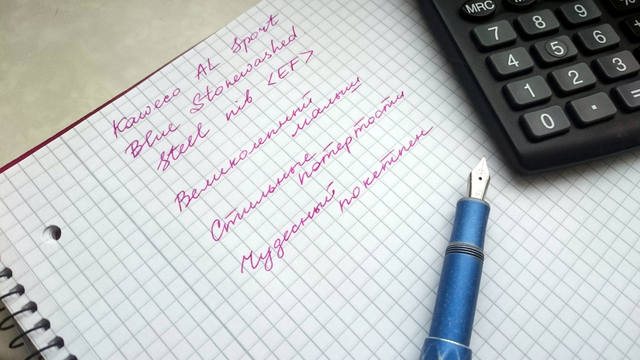 Kaweco AL Sport
Blue Stonewashed
Steel nib <EF>
Великолепный
малыш
Стильные
потёртости
Чудесный
покетпен
MRC
7 8 9
4 5 6
1 2 3
0 . =